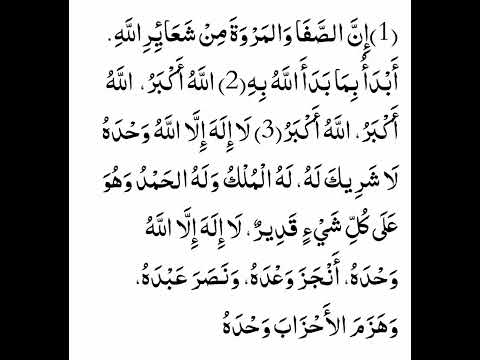 (1) إِنَّ الصَّفَا وَالمَرْوَةَ مِنْ شَعَائِرِ اللَّهِ.
أَبْدَأُ بِمَا بَدَأَ اللَّهُ بِهِ (2) اللَّهُ أَكْبَرُ، اللَّهُ
أَكْبَرُ، اللَّهُ أَكْبَرُ (3) لَا إِلَهَ إِلَّا اللَّهُ وَحْدَهُ
لَا شَرِيكَ لَهُ، لَهُ الْمُلْكُ وَلَهُ الحَمْدُ وَهُوَ
عَلَى كُلِّ شَيْءٍ قَدِيرٌ، لَا إِلَهَ إِلَّا اللَّهُ
وَحْدَهُ، أَنْجَزَ وَعْدَهُ، وَنَصَرَ عَبْدَهُ،
وَهَزَمَ الأَحْزَابَ وَحْدَهُ